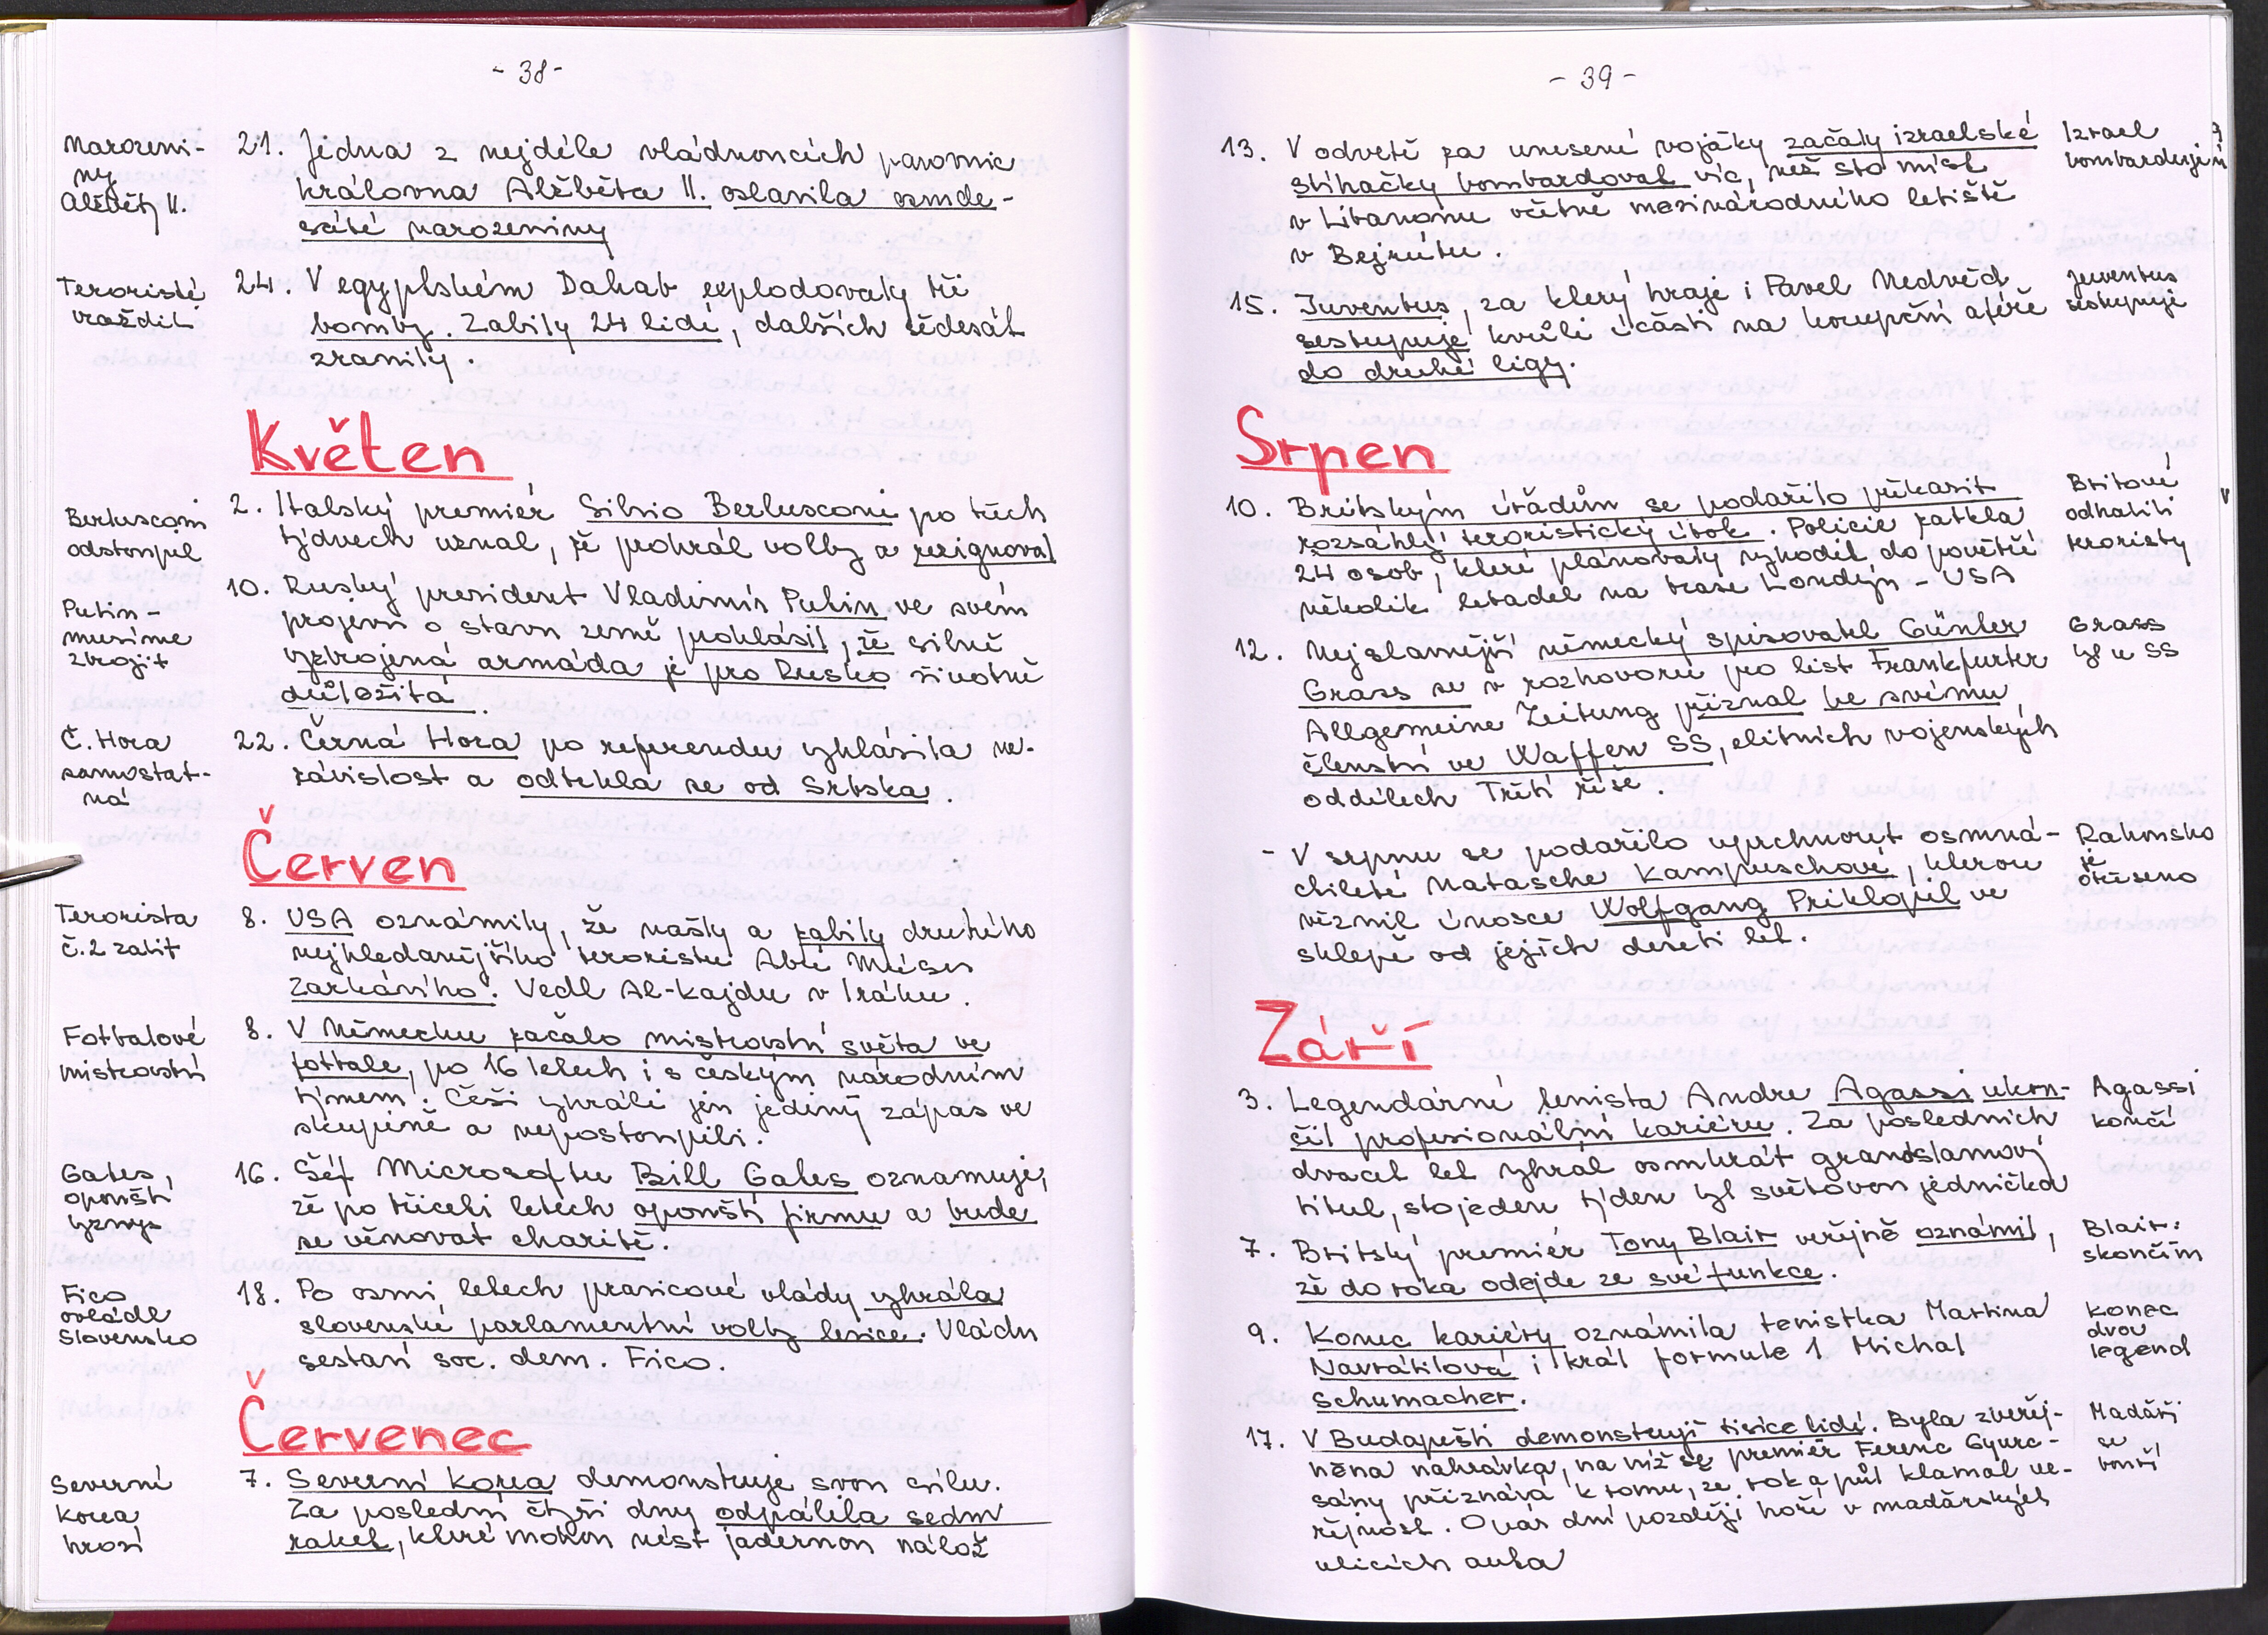 - 38 -
Narozeni-
ny
Alžběty II.
21. Jedna z nejdéle vládnoucích panovnic
královna Alžběta II. oslavila osmde-
sáté narozeniny
Teroristé
vraždili
24. V egyptském Dahab explodovaly tři
bomby. Zabily 24 lidí, dalších šedesát
zranily.
Květen
Berlusconi
odstoupil
2. Italský premiér Silvio Berlusconi po třech
týdnech uznal, že prohrál volby a rezignoval
Putin -
musíme
zbrojit
10. Ruský president Vladimír Putin ve svém
projevu o stavu země prohlásil, že silně
vyzbrojená armáda je pro Rusko životně
důležitá.
Č. Hora
samostat-
ná
22. Černá Hora po referendu vyhlásila ne-
závislost a odtrhla se od Srbska.
Červen
Terorista
č. 2 zabit
8. USA oznámily, že našly a zabily druhého
nejhledanějšího teroristu Abú Músu
Zarkávího. Vedl Al-Kajdu v Iráku.
Fotbalové
mistrovství
8. V Německu začalo mistrovství světa ve
fotbale, po 16 letech i s českým národním
týmem. Češi vyhráli jen jediný zápas ve
skupině a nepostoupili.
Gates
opouští
byznys
16. Šéf Microsoftu Bill Gates oznamuje,
že po třiceti letech opouští firmu a bude
se věnovat charitě.
Fico
ovládl
Slovensko
18. Po osmi letech pravicové vlády vyhrála
slovenské parlamentní volby levice. Vládu
sestaví soc. dem. Fico.
Červenec
Severní
Korea
hrozí
7. Severní Korea demonstruje svou sílu.
Za poslední čtyři dny odpálila sedm
raket, které mohou nést jadernou nálož
- 39 -
13. V odvetě za unesené vojáky začaly izraelské
stíhačky bombardovat víc, než sto míst
v Libanonu včetně mezinárodního letiště
v Bejrútu.
Izrael
bombarduje
15. Juventus, za který hraje i Pavel Nedvěd
sestupuje kvůli účasti na korupční aféře
do druhé ligy.
Juventus
sestupuje
Srpen
10. Britským úřadům se podařilo překazit
rozsáhlý teroristický útok. Policie zatkla
24 osob, které plánovaly vyhodit do povětří
několik letadel na trase Londýn - USA
Britové
odhalili
teroristy
12. Nejslavnější německý spisovatel Günter
Grass se v rozhovoru pro list Frankfurter
Allgemeine Zeitung přiznal ke svému
členství ve Waffen SS, elitních vojenských
oddílech Třetí říše.
Grass
byl u SS
- V srpnu se podařilo uprchnout osmná-
ctileté Natasche Kampuschové, kterou
věznil únosce Wolfgang Priklopil ve
sklepě od jejích deseti let.
Rakousko
je
otřeseno
Září
3. Legendární tenista Andre Agassi ukon-
čil profesionální kariéru. Za posledních
dvacet let vyhrál osmkrát grandslamový
titul, sto jeden týden byl světovou jedničkou
Agassi
končí
7. Britský premiér Tony Blair veřejně oznámil,
že do roka odejde ze své funkce.
Blair:
skončím
9. Konec kariéry oznámila tenistka Martina
Navrátilová i král formule 1 Michal
Schumacher.
Konec
dvou
legend
17. V Budapešti demonstrují tisíce lidí. Byla zveřej-
něna nahrávka, na níž se premiér Ferenc Gyurc-
sány přiznává k tomu, že rok a půl klamal ve-
řejnost. O pár dní později hoří v maďarských
ulicích auta
Maďaři
se
bouří